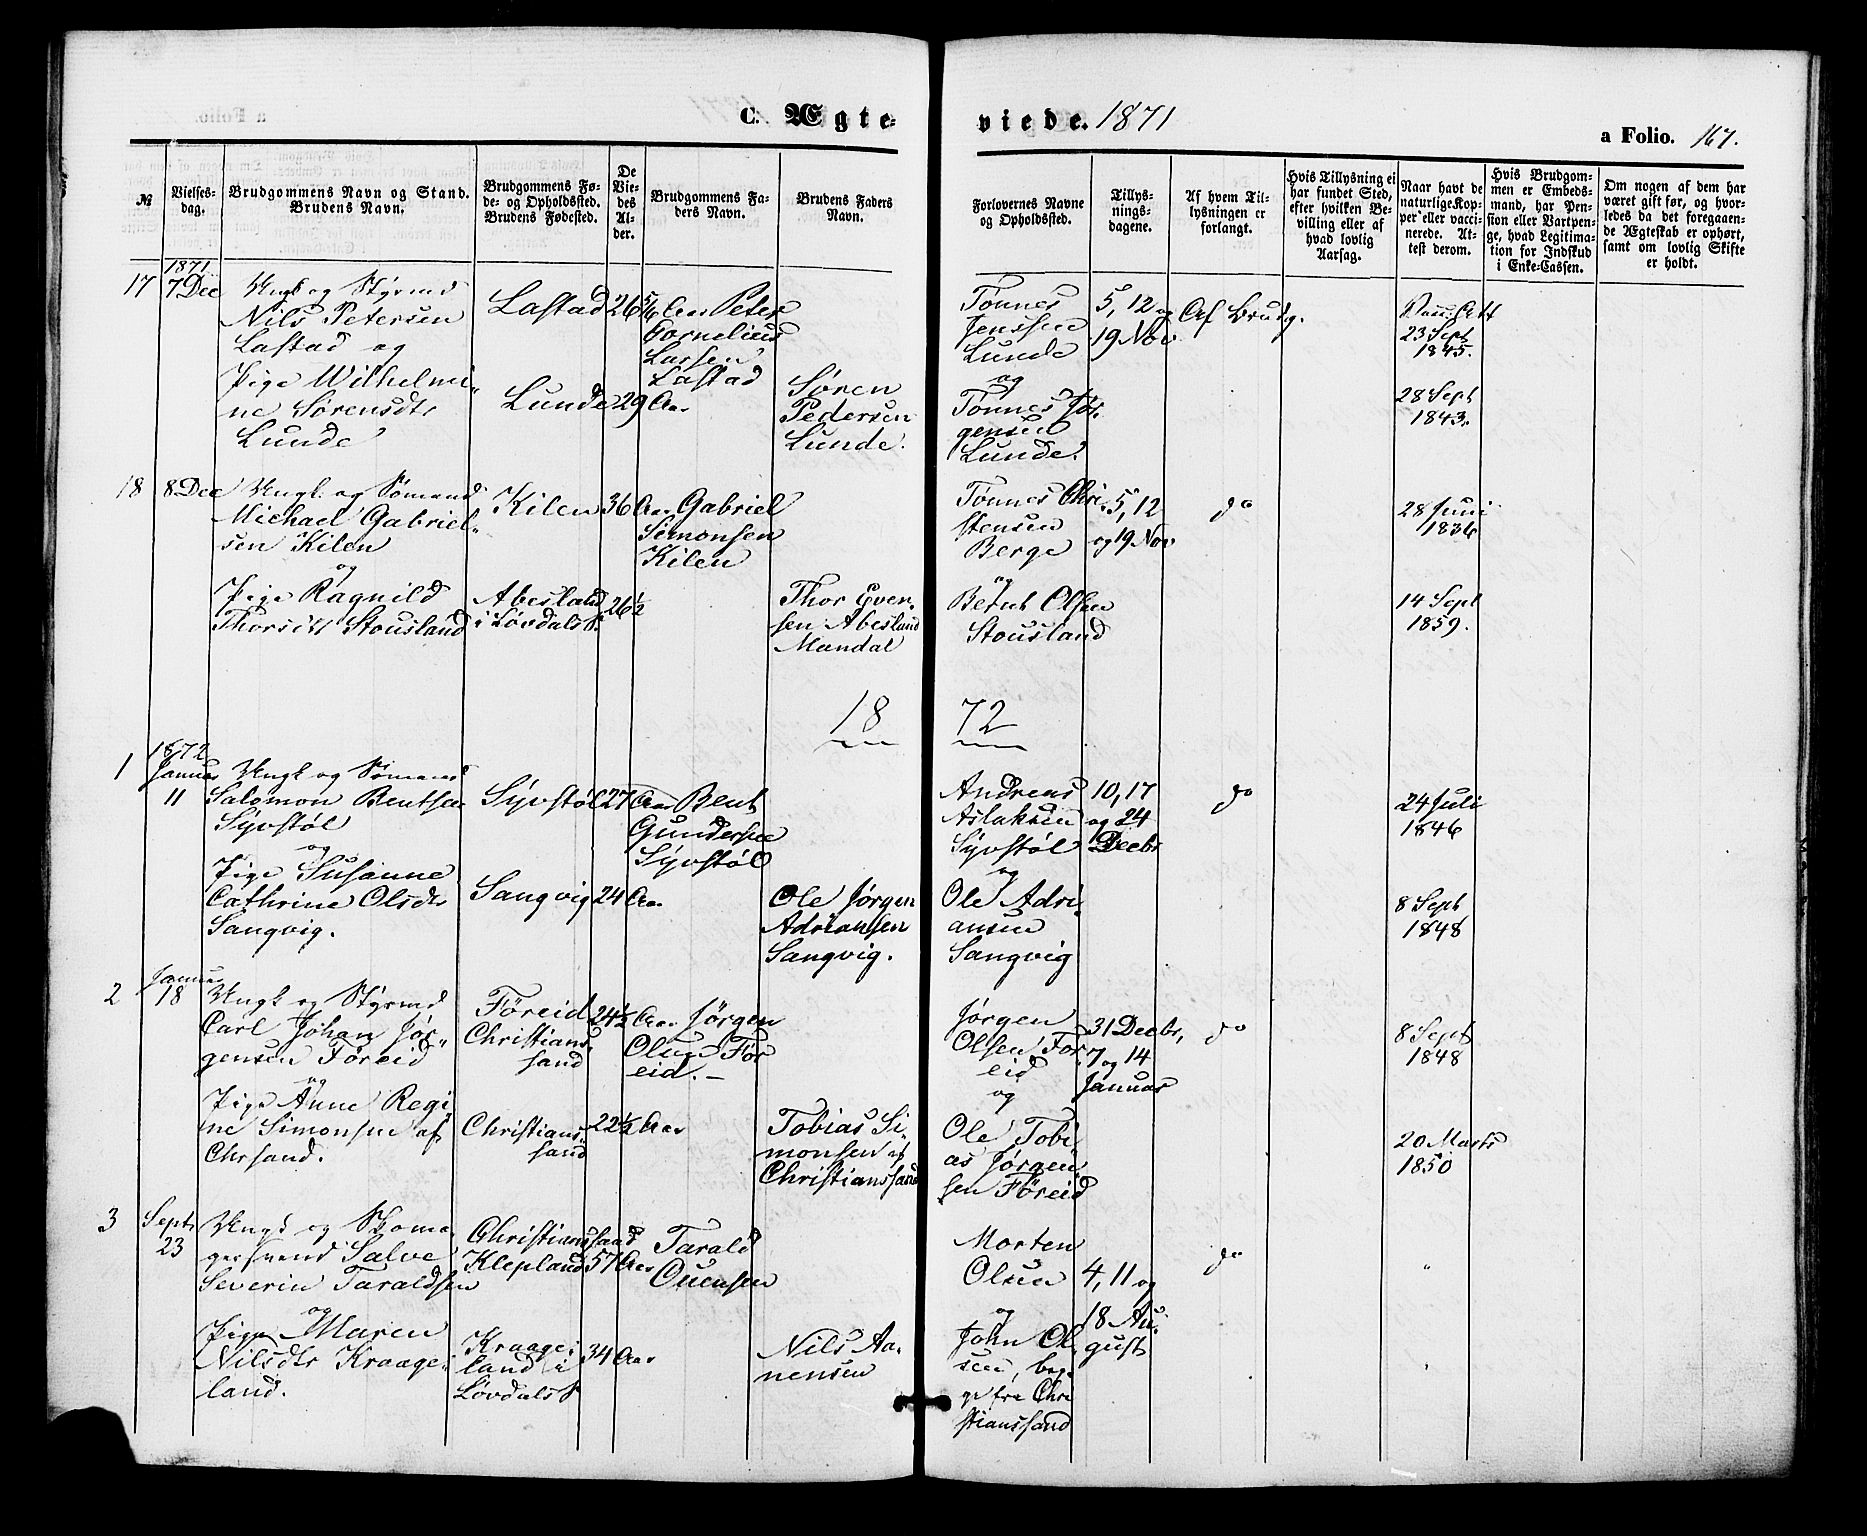 C. Ægte-
viede. 1871
a Folio. 167.
№
Vielses-
dag.
Brudgommens Navn og Stand.
Brudens Navn.
Brudgommens Fø-
de- og Opholdsted.
Brudens Fødested.
De
Vie-
des
Al-
der.
Brudgommens Fa-
ders Navn.
Brudens Faders
Navn.
Forlovernes Navne
og Opholdsted.
Tillys-
nings-
dagene.
Af hvem Til-
lysningen er
forlangt.
Hvis Tillysning ei
har fundet Sted,
efter hvilken Be-
villing eller af
hvad lovlig
Aarsag.
Naar havt de
naturlige Kop-
per eller vacci-
nerede. At-
test derom.
Hvis Brudgom-
men er Embeds-
mand, har Pen-
sion eller Vartpen-
ge, hvad Legitima-
tion for Indskud
i Enke-Cassen.
Om nogen af dem har
været gift før, og hvor-
ledes da det foregaaen-
de Ægteskab er ophørt,
samt om lovlig Skifte
er holdt.
1871
17
7 Dec
Ungk og Styrmd
Nils Petersen
Lastad og
Pige Wilhelmi-
ne Sørensdtr
Lunde
Lastad
Lunde
26 5/6 Aar
29 Aar
Peter
Cornelius
Larsen
Lastad
Søren
Pedersen
Lunde.
Tønnes
Jenssen
Lunde
og
Tønnes Jør-
gensen
Lunde.
5, 12 og
19 Nov
Af Brudg.
23 Sept
1845.
28 Sept
1843.
18
8 Dec
Ungk. og Sømand
Michael Gabriel-
sen Kilen
og
Pige Ragnild
Thorsdtr Stousland
Kilen
Abesland
i Løvdals S.
36 Aar
26 1/2
Gabriel
Simonsen
Kilen
Thor Even-
sen Abesland
Mandal
Tønnes Chri-
stensen
Berge
og
Bernt Olsen
Stousland
5, 12
og 19 Nov
do
28 Juni
1836
14 Sept
1859.
18 72
1872
1
Januar
11
Ungk og Sømand
Salomon Bentsen
Syvstøl
og
Pige Susanne
Cathrine Olsdtr
Sangvig.
Syvstøl
Sangvig
27 Aar
24 Aar
Bent
Gundersen
Syvstøl
Ole Jørgen
Adriansen
Sangvig.
Andreas
Aslaksen
Syvstøl
og
Ole Adri-
ansen
Sangvig
10, 17
og 24
Decbr
do
24 Juli
1846
8 Sept
1848
2
Januar
18
Ungk og Styrmd
Carl Johan Jør-
gensen Føreid
og
Pige Anne Regi-
ne Simonsen af
Chrsand.
Föreid
Christians-
sand
Christians-
sand
24 1/2 Aar
22 1/2 Aar
Jørgen
Olsen Før
eid.-
Tobias Si-
monsen af
Christianssand
Jørgen
Olsen Før
eid
og
Ole Tobi-
as Jørgen-
sen Føreid
31 Decbr,
7 og 14
Januar
do
8 Sept
1848
20 Marts
1850
3
Septr
23
Ungk og Skoma-
gersvend Salve
Severin Taraldsen
og
Pige Maren
Nilsdtr Kraage-
land.
Christianssand
Klepland
Kraage-
land i
Løvdals S
57 Aar
34 Aar
Tarald
Ouensen
Nils Aa-
nensen
Morten
Olsen
og
John Ol-
sen, beg-
ge fra Chri
stianssand
4, 11 og
18 Au-
gust
do
"
"